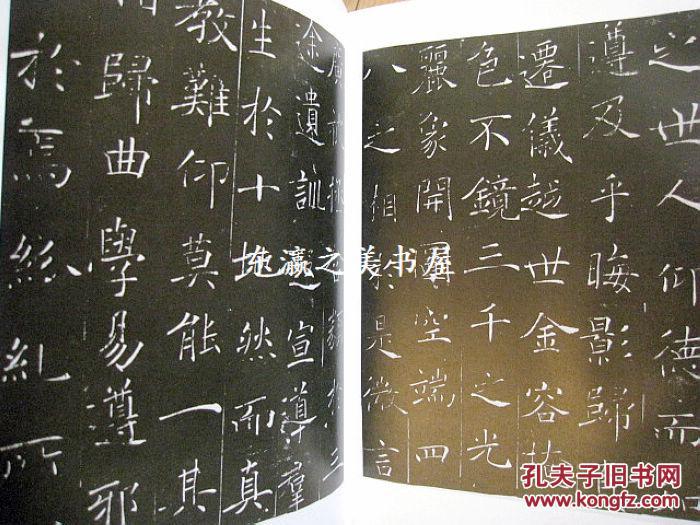 之世人仰德而
遵及乎晦影歸
遷儀越世金容掩
色不鏡三千之光
麗象開圖空端四
八之相於是微言
廣被拯含類於三
途遺訓遐宣導群
生於十地然而真
教難仰莫能一其
歸曲學易遵邪
於焉紛糺所
东瀛之美书屋
孔夫子旧书网
www.kongfz.com